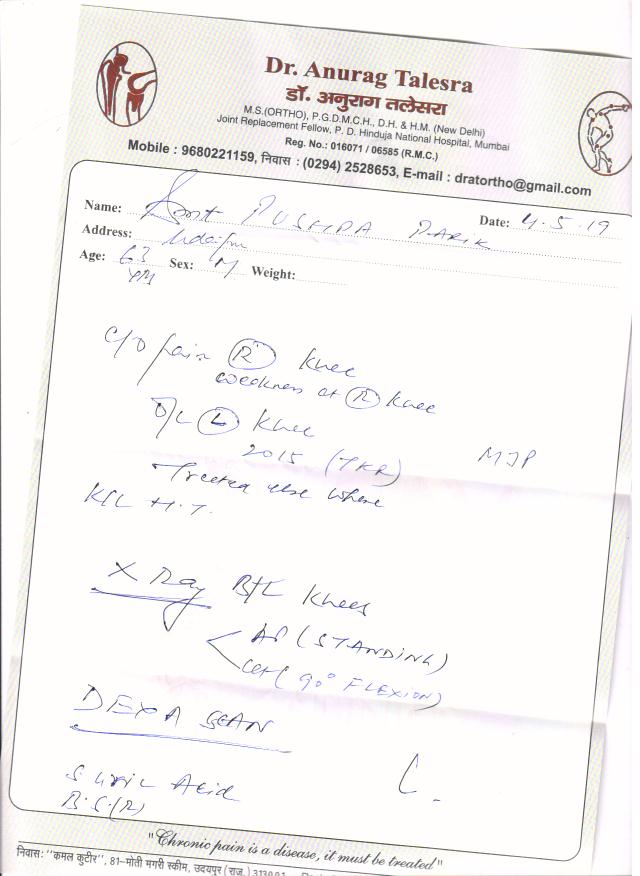 Dr. Anurag Talesra
डॉ. अनुराग तलेसरा
M.S.(ORTHO), P.G.D.M.C.H., D.H. & H.M. (New Delhi)
Joint Replacement Fellow, P. D. Hinduja National Hospital, Mumbai
Reg. No.: 016071 / 06585 (R.M.C.)
Mobile : 9680221159, निवास : (0294) 2528653, E-mail : dratortho@gmail.com
Name: Smt PUSHPA PARIK Date: 4.5.19
Address: Udaipur
Age: 63 Sex: M Weight:
C/O pain (R) knee
weakness at (R) knee
(L) knee
2015 (TKR) MJP
Treated else where
K/C H.T.
X Ray B/L Knees
AP (STANDING)
Lat (90° FLEXION)
DEXA SCAN
S. Uric Acid
B.S.(R)
"Chronic pain is a disease, it must be treated"
निवास: "कमल कुटीर", 81-मोती मगरी स्कीम, उदयपुर (राज.)